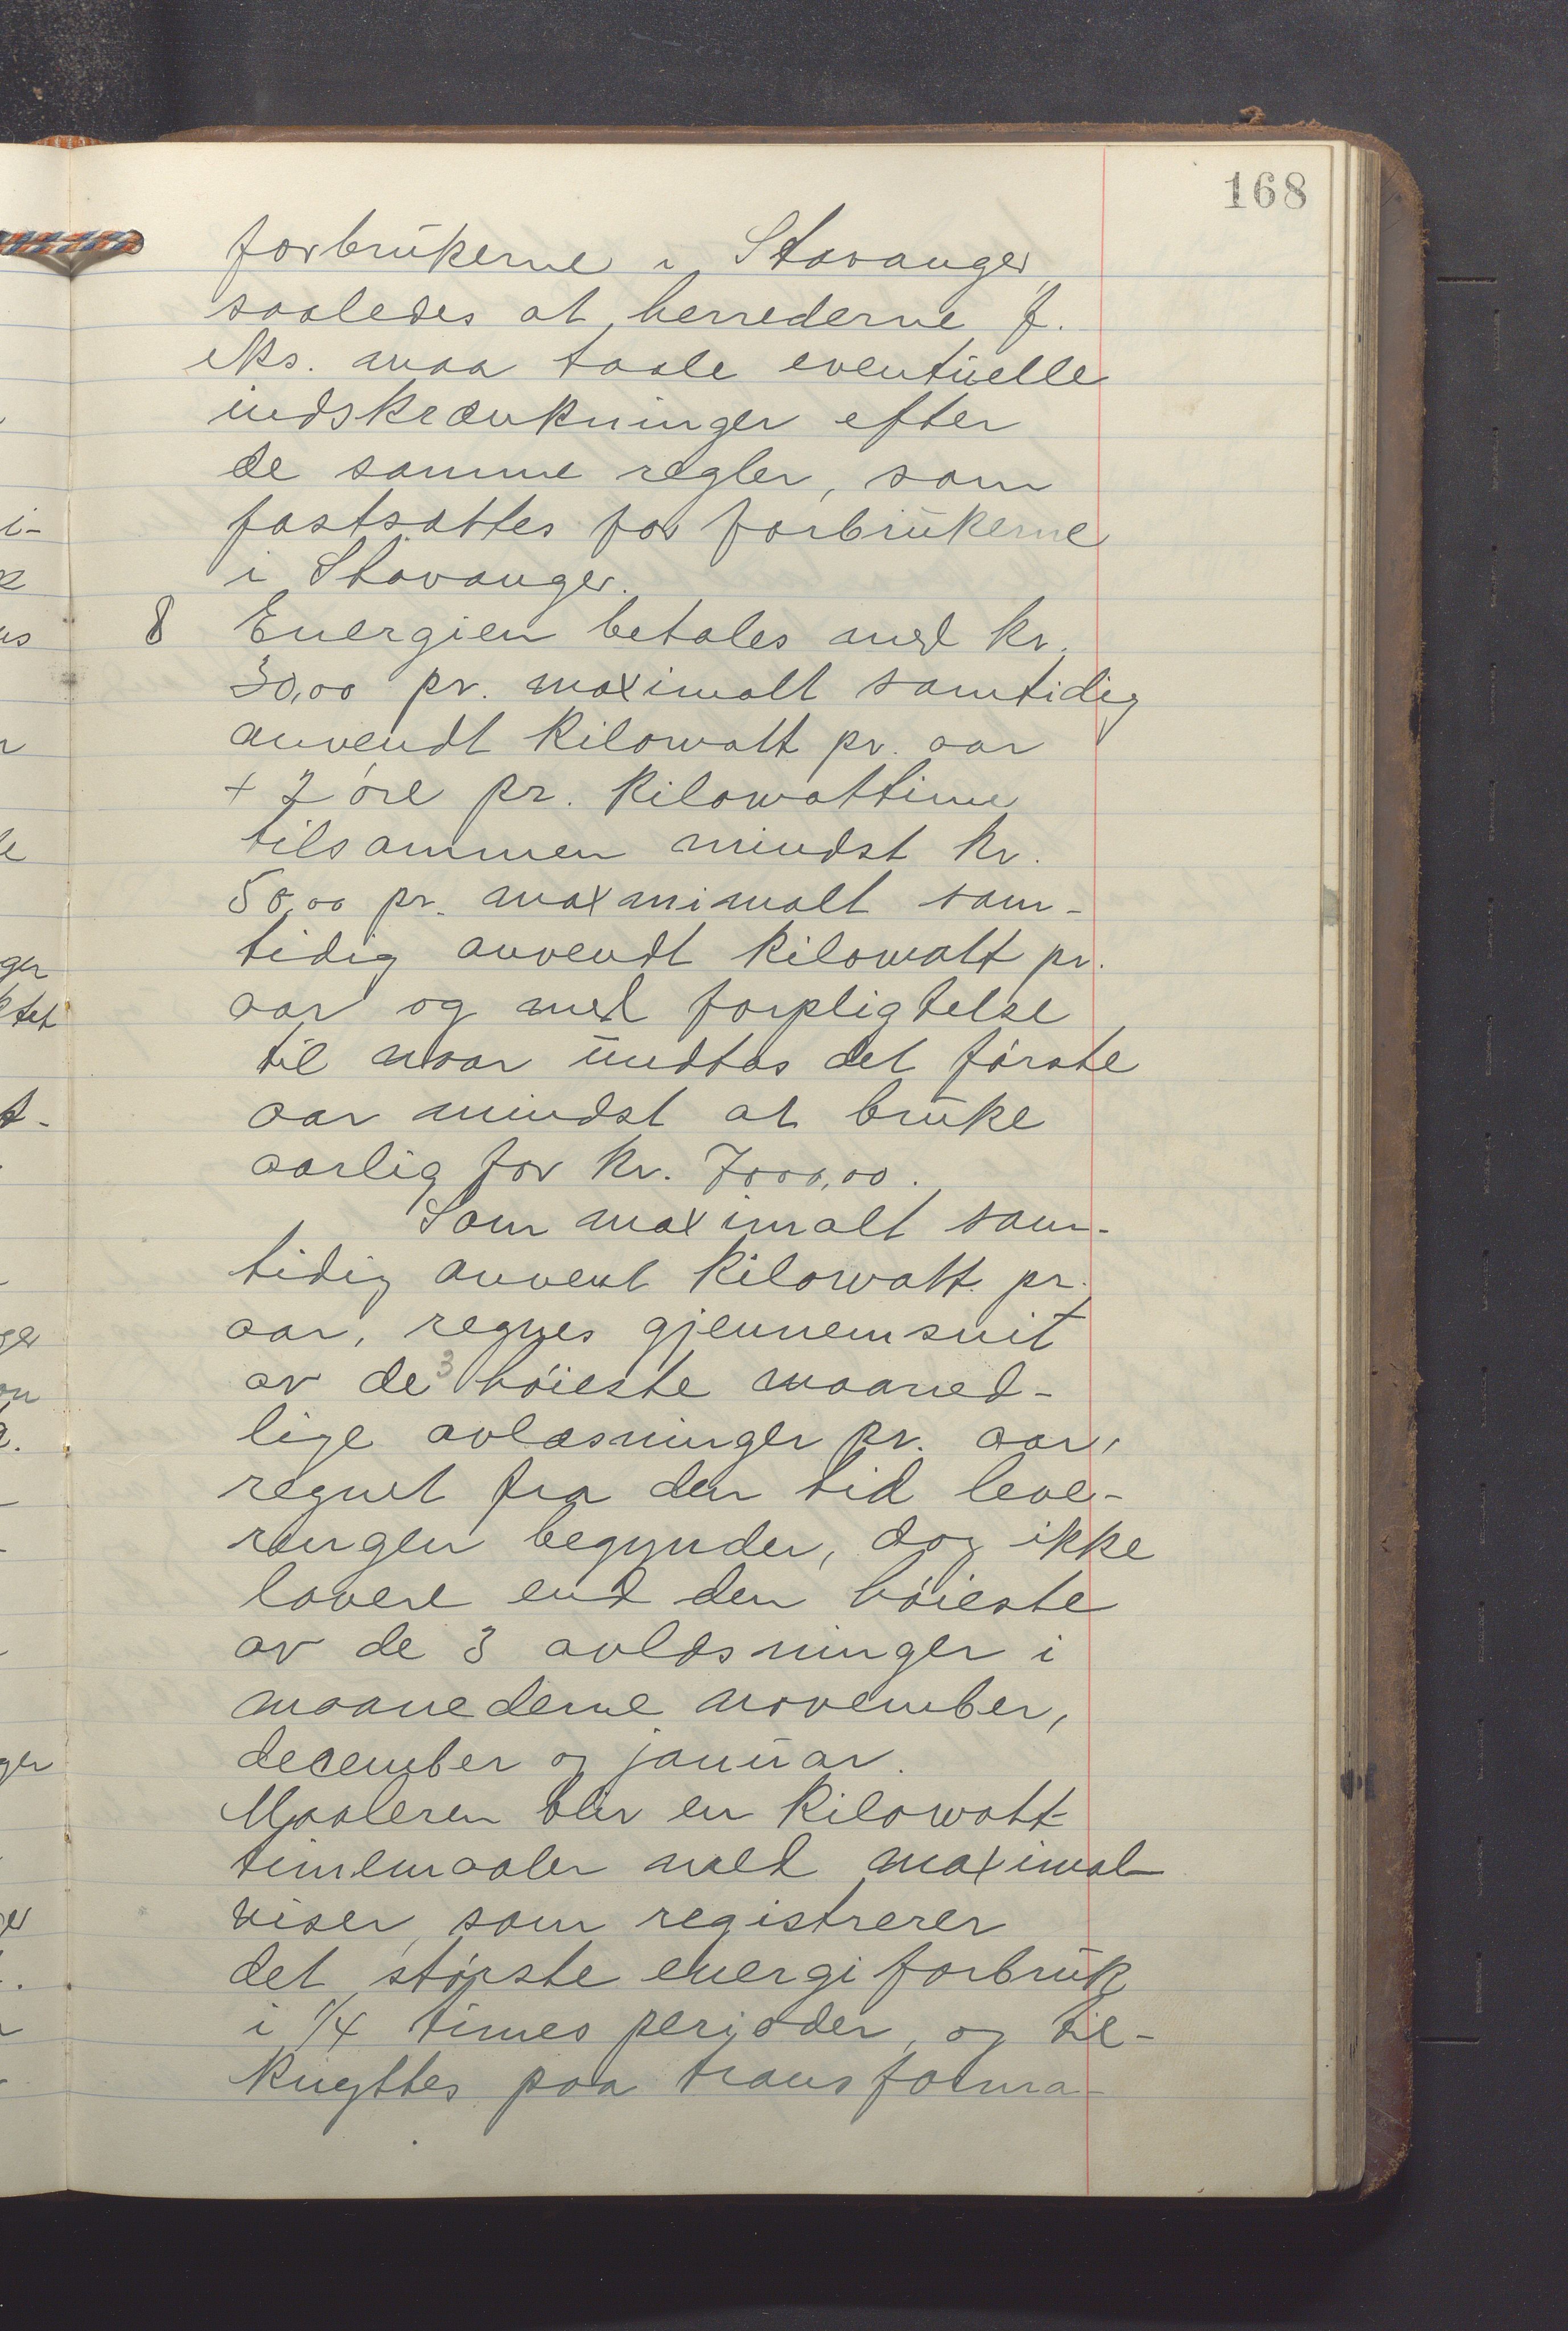 168
forbrukerne i Stavanger,
saaledes at herrederne f.
eks. maa taale eventuelle
indskrænkninger efter
de samme regler, som
fastsattes for forbrukerne
i Stavanger.
8 Energien betales med kr.
30,00 pr. maximalt samtidig
anvendt kilowatt pr. aar
+ 2 øre pr. kilowattime
tilsammen mindst kr.
50,00 pr. maxmimalt sam-
tidig anvendt kilowatt pr.
aar og med forpligtelse
til naar undtas det første
aar mindst at bruke
aarlig for kr. 7000,00.
Som maximalt sam-
tidig anvent kilowatt pr.
aar, regnes gjennemsnit
av de 3 høieste maaned-
lige avlæsninger pr. aar,
regnet fra den tid leve-
ringen begynder, dog ikke
lavere end den høieste
av de 3 avlæsninger i
maanederne november,
december og januar.
Maaleren blir en kilowatt-
timemaaler med maximal-
viser, som registrerer
det største energiforbruk
i 1/4 times perioder, og til-
knyttes paa transforma-